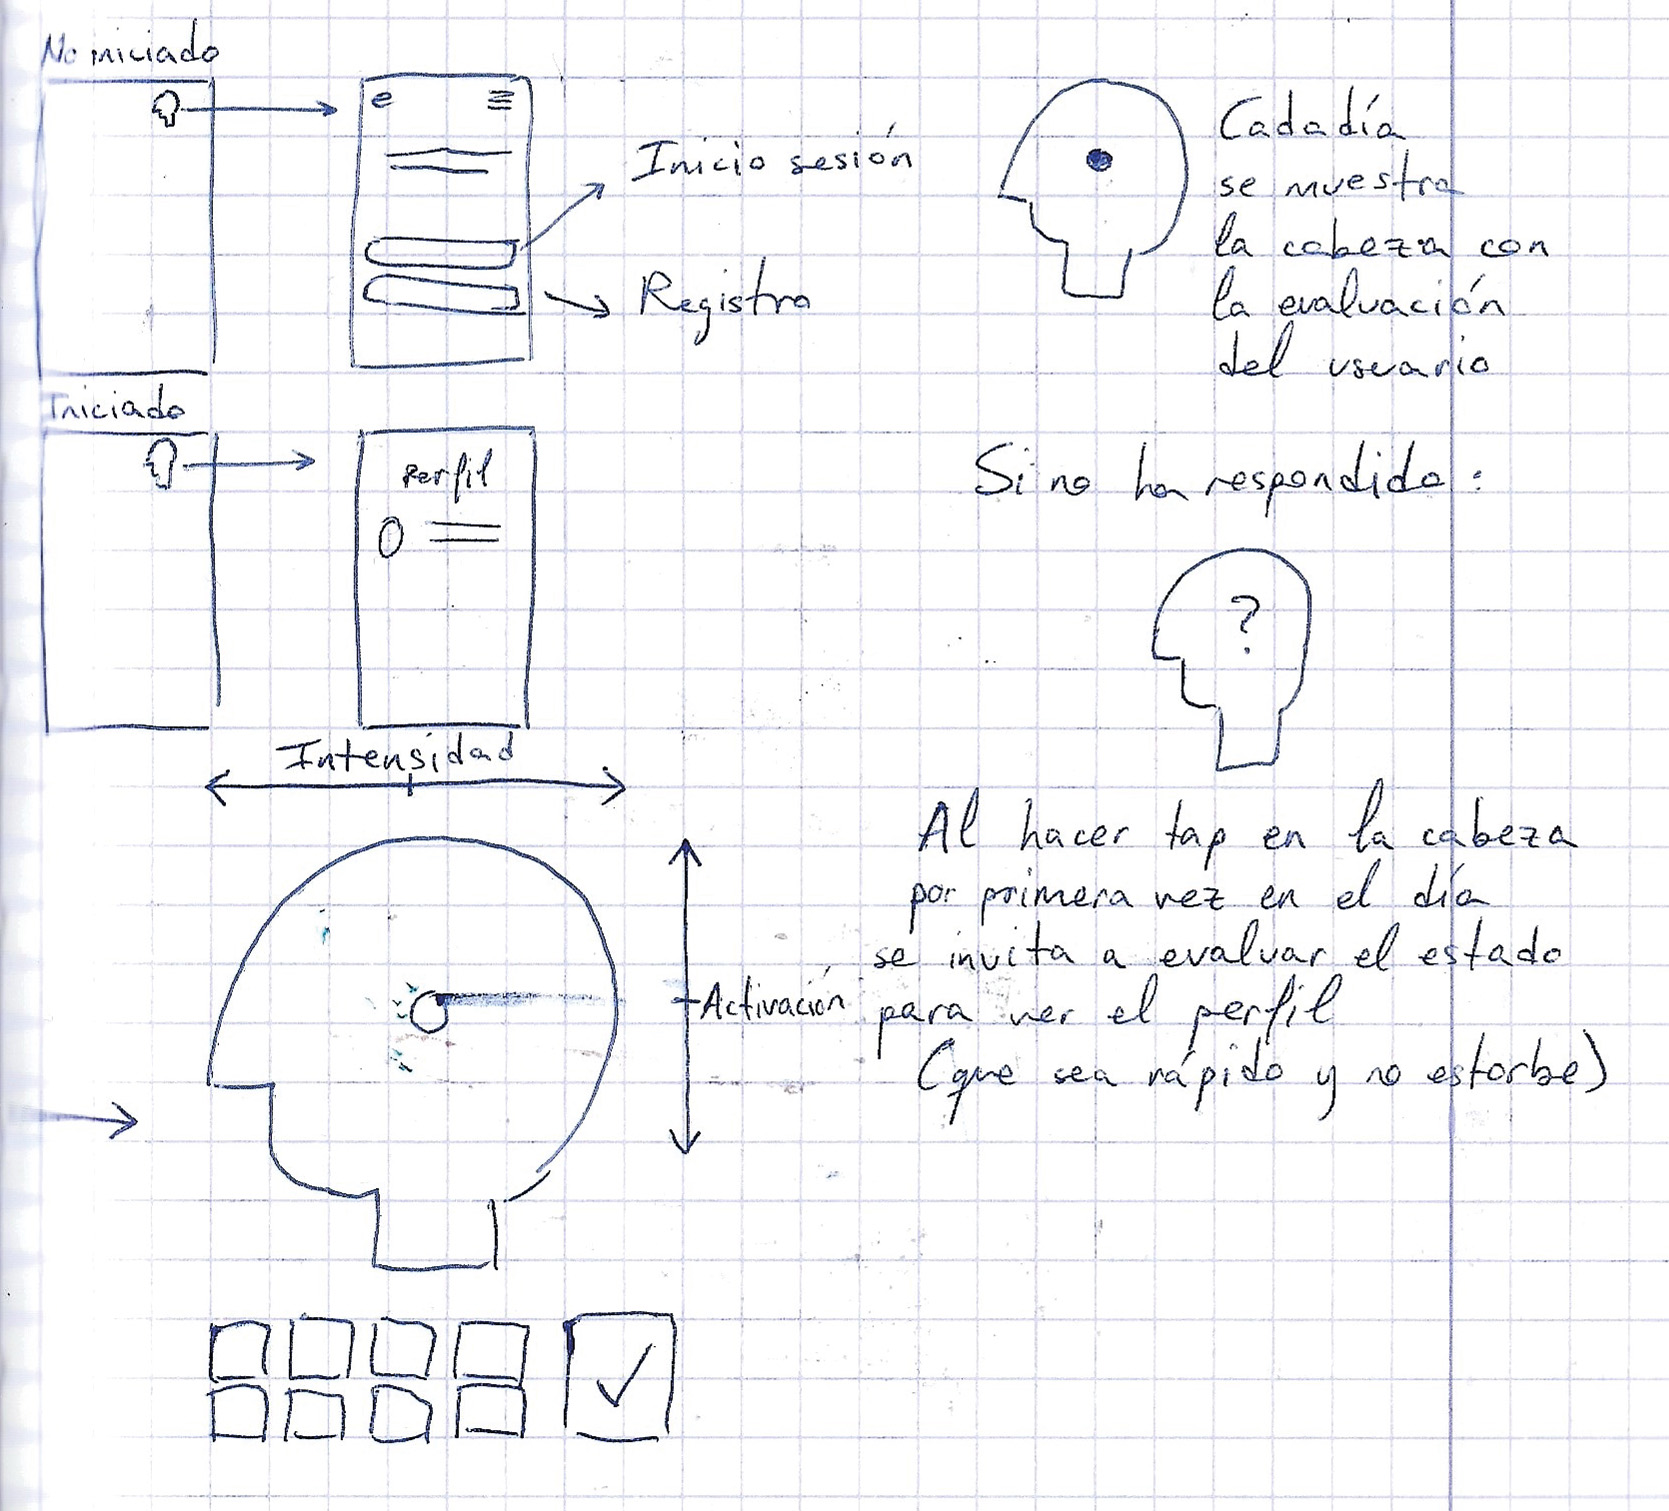 No iniciado
e
Inicio sesión
Registro
Cada día
se muestra
la cabeza con
la evaluación
del usuario
Iniciado
Perfil
Si no ha respondido:
?
Intensidad
Activación
Al hacer tap en la cabeza
por primera vez en el día
se invita a evaluar el estado
para ver el perfil
(que sea rápido y no estorbe)